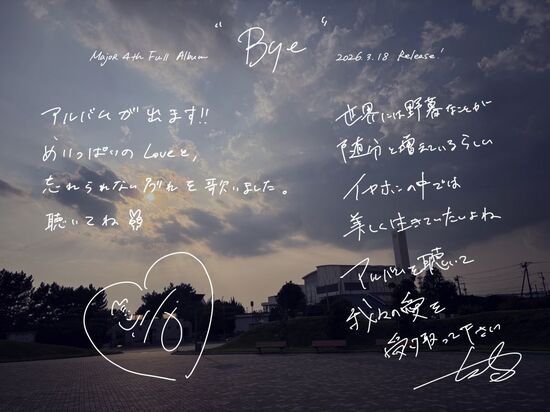 Major 4th Full Album
"Bye"
2026.3.18 Release!
アルバムが出ます!!
めいっぱいのLoveと、
忘れられない別れを歌いました。
聴いてね
世界には野暮なことが
随分と増えているらしい
イヤホンの中では
美しく生きていたいよね
アルバムを聴いて
我々の愛を
受け取って下さい